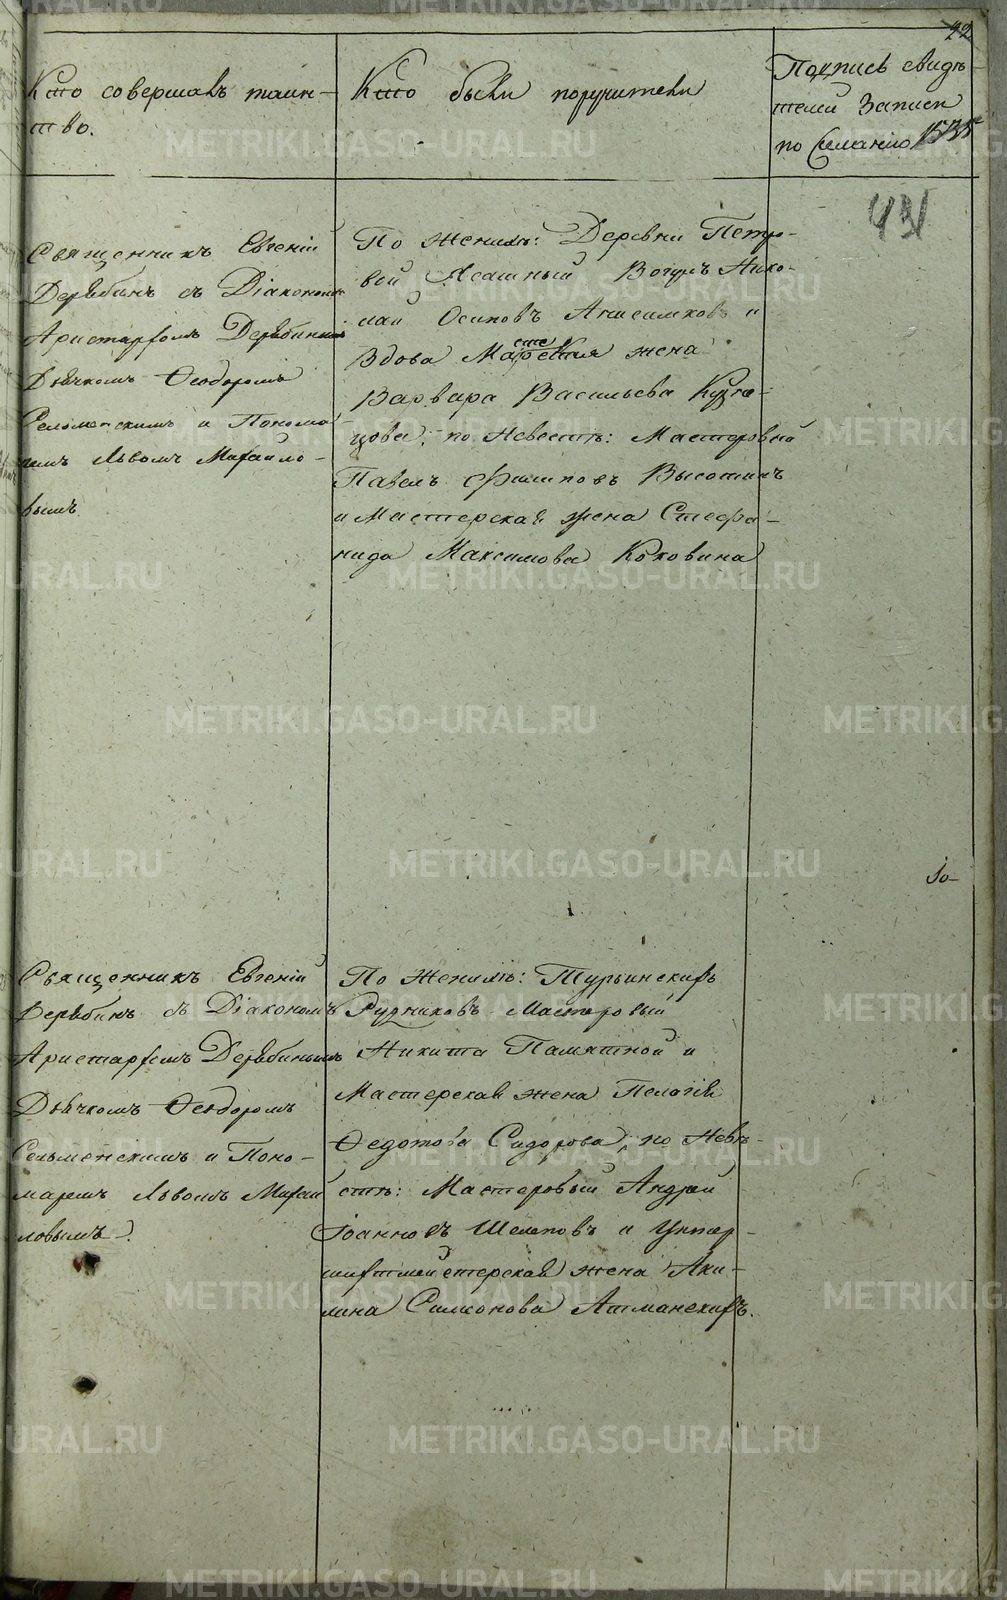 22
Кто совершалъ таин-
ство.
Кто были поручители
Подпись свидѣ-
телей Записи
по Желанію
431
Священникъ Евгеній
Дерябинъ съ Діакономъ
Аристархомъ Дерябинымъ
Дьячкомъ Ѳеодоромъ
Сельменскимъ и Понома-
ремъ Львомъ Михайло-
вымъ
По Женихѣ: Деревни Петро-
вой Ясашный Вогулъ Нико-
лай Осиповъ Анисимковъ и
Вдова Мастерская жена
Варвара Васильева Кузне-
цова; по Невестѣ: Мастеровый
Павелъ Филиповъ Высотинъ
и Мастерская жена Стефа-
нида Максимова Коковина
Священникъ Евгеній
Дерябинъ съ Діакономъ
Аристархомъ Дерябинымъ
Дьячкомъ Ѳеодоромъ
Сельменскимъ и Поно-
маремъ Львомъ Михай
ловымъ.
По Женихѣ: Турьинскихъ
Рудниковъ Мастеровый
Никита Памятной и
Мастерская жена Пелагея
Ѳедотова Сидорова, по Невѣ-
стѣ: Мастеровый Андрей
Іоанновъ Шелеповъ и Унтер-
шихтмейстерская жена Аки-
лина Симонова Атманскихъ.
METRIKI.GASO-URAL.RU